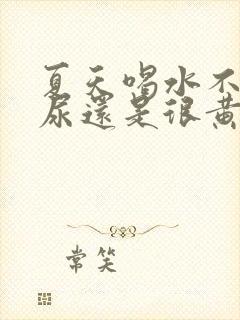 夏天喝水不
尿還是很黃
常笑